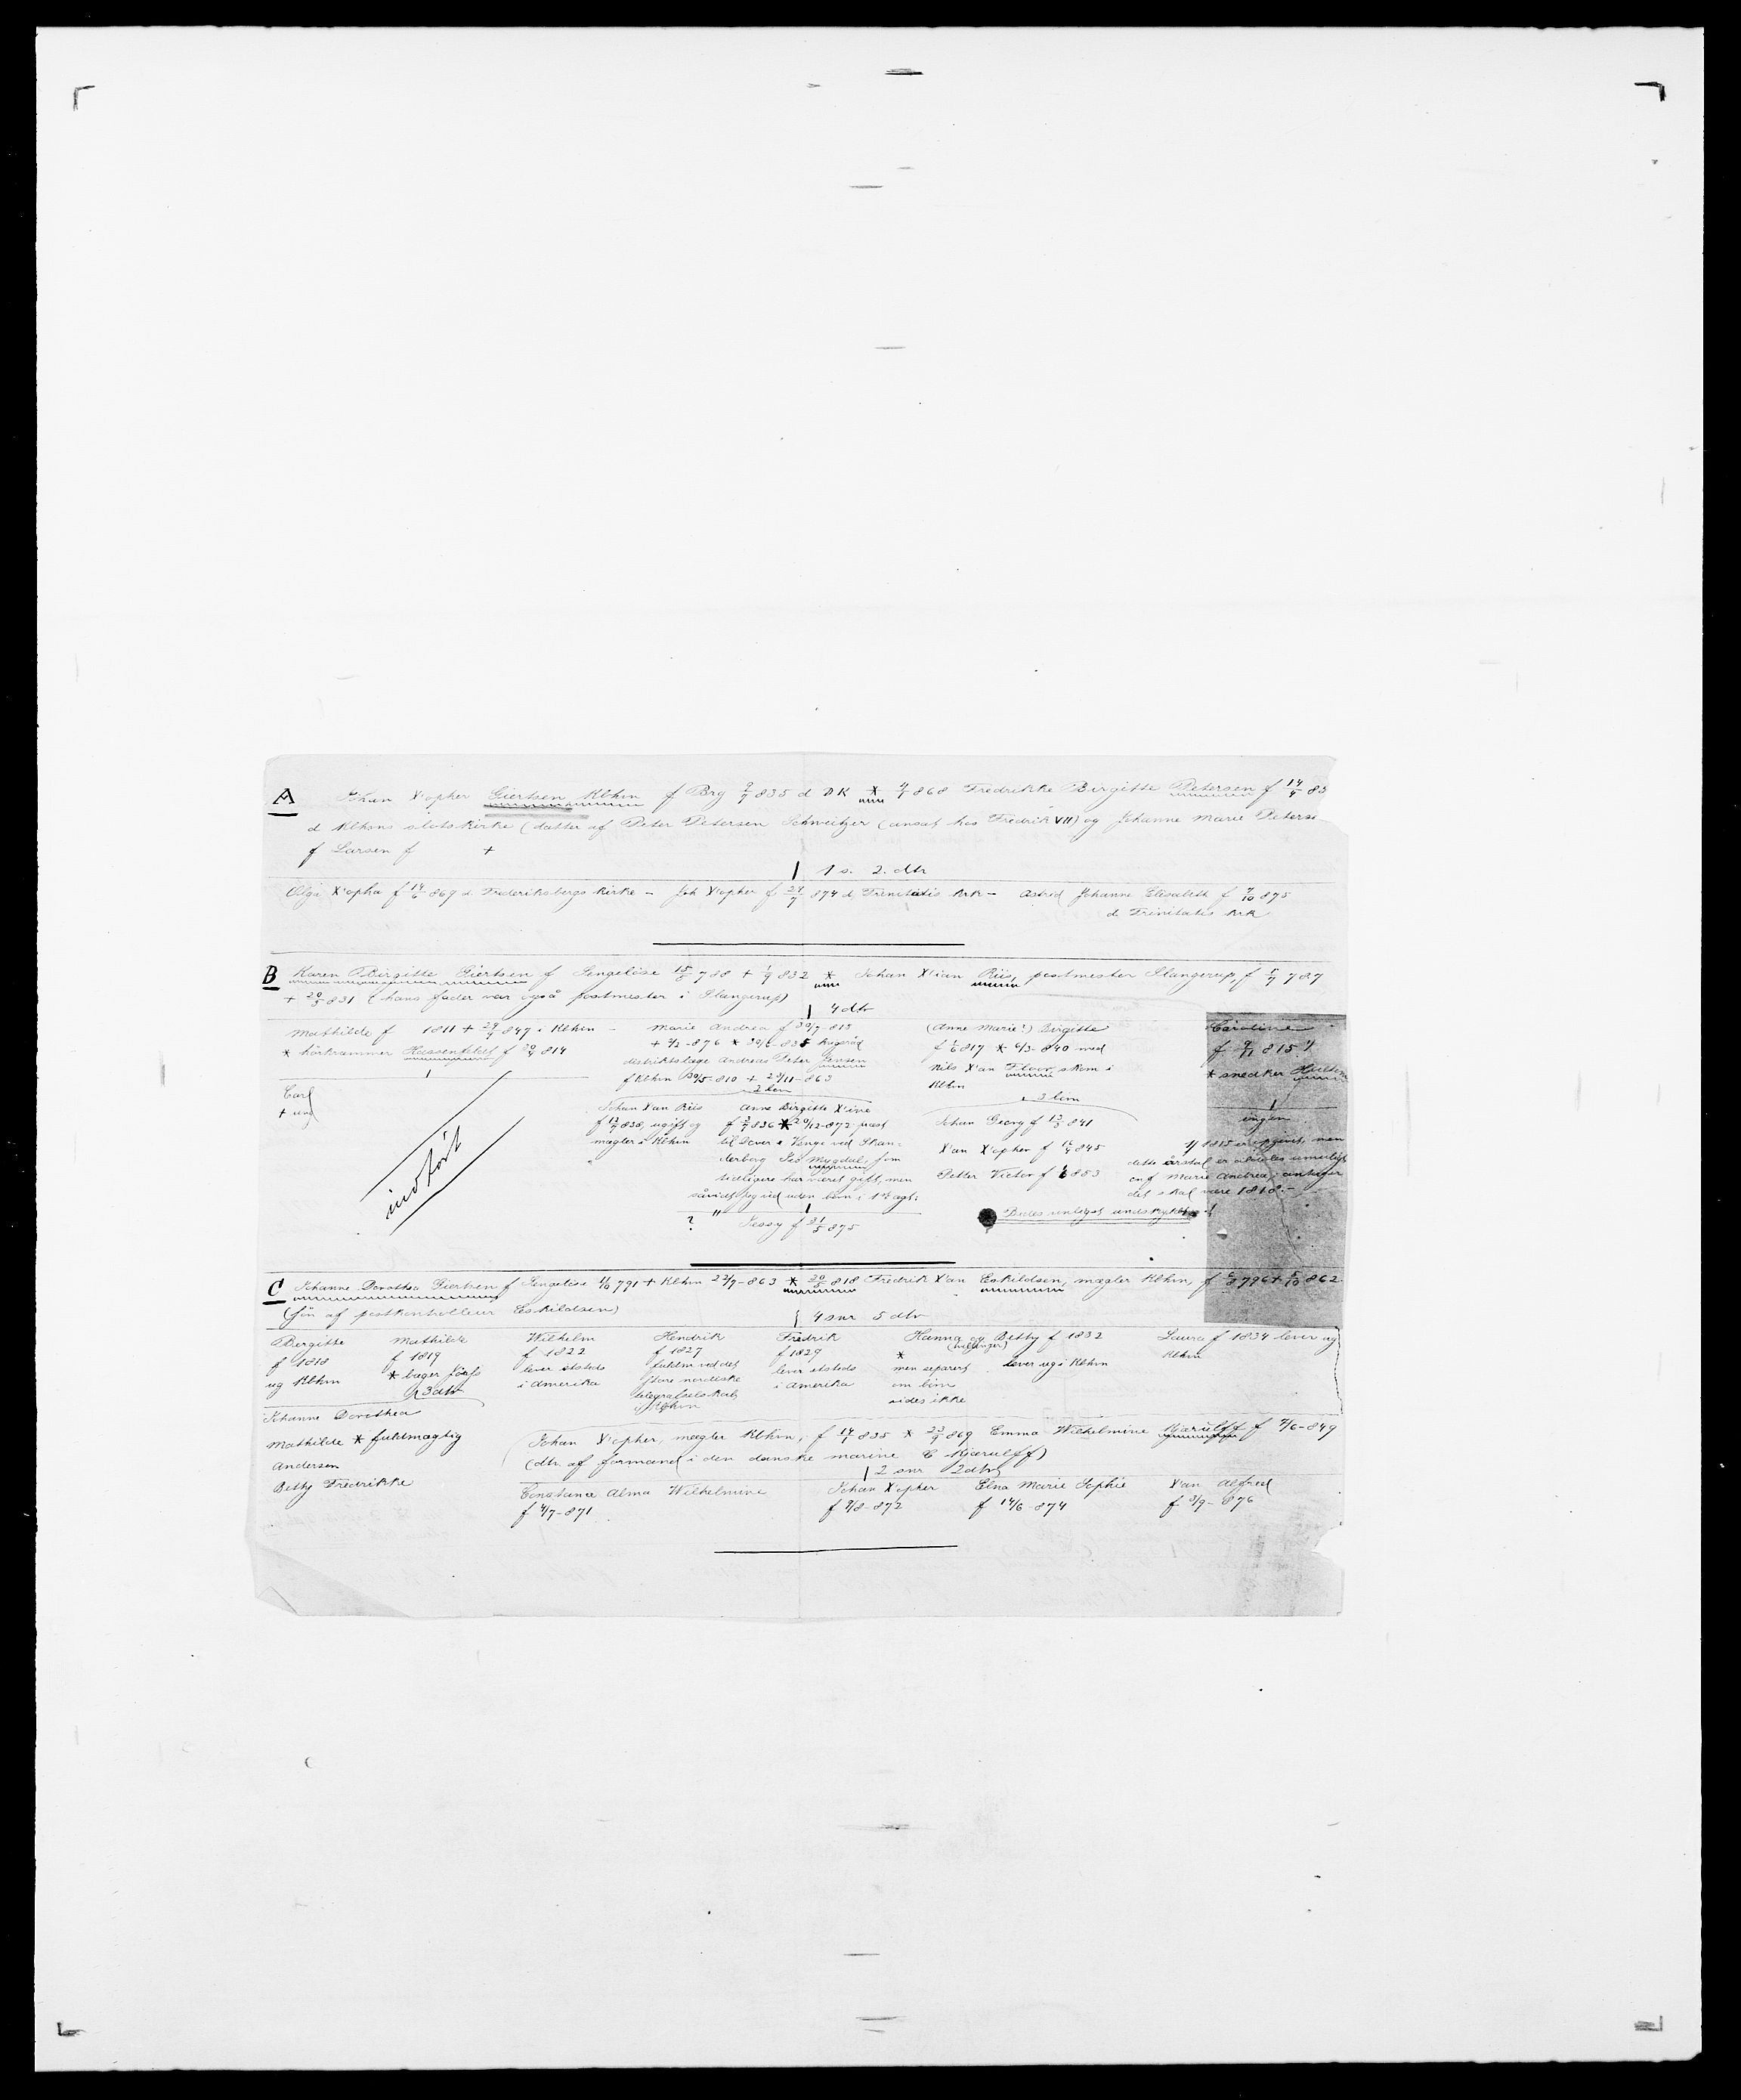 A Johan X'opher Giertsen Kbhvn f Brg 2/7 835 d DK * 4/9 868 Fredrikke Birgitte Petersen f 14/9 83
d Kbhvns slotskirke (datter af Peter Petersen Schweitzer (ansat hos Fredrik VII) og Johanne Marie Peters
f Larsen f +
1 s. 2. dtr
Olga X'opha f 14/6 869 d. Frederiksbergs Kirke – Joh X'opher f 27/7 874 d Trinitatis krk – Astrid Johanne Elisabeth f 7/10 875
d. Trinitatis krk
B Karen Birgitte Giertsen f Sengeløse 15/5 788 + 1/9 832 * Johan X'ian Riis, postmester Slangerup, f 5/7 787
+ 20/5 831 (hans fader var også postmester i Slangerup)
4 dtr
Mathilde f 1811 + 29/9 847 i Kbhvn –
* hørkræmmer Hassenfeldt f 20/4 814
Carl
+ ung
indført
Marie Andrea f 30/7 813
+ 2/2-876 * 30/6-835 krigsråd
distriktslæge Andreas Peter Jensen
f Kbhvn 30/5-810 + 29/11-863
2 børn
Johan X'an Riis
f 12/9 838, ugift og
mægler i Kbhvn
Anne Birgitte X'ine
f 3/7 836 * 20/12-872 præst
til Dover & Venge ved Skan=
derborg Mygdal, som
tidligere har været gift, men
såvidt jeg ved uden børn i 1ste ægt:
? " Jessy f 31/5 875
(Anne Marie!) Birgitte
f 1/6 817 * 6/3-840 med
Nils X'an Floor, skom i
Kbhvn
3 børn
Johan Georg f 13/3 841
X'an X'opher f 15/4 845
Petter Victor f 853
Caroline
f 9/11 815 1)
* snedker
ingen
1) 1815 er opgivet, men
dette årstal er aldeles umuligt
cnf Marie Andrea, antager
det skal være 1818. –
C Johanne Dorothea Giertsen f Sengeløse 1/10 791 + Kbhvn 22/7-863 * 20/5 818 Fredrik X'an Eskildsen, mægler Kbhvn, f 6/8 796 + 5/10 862
(søn af postkontrolleur Eskildsen)
4 snr 5 dtr
Bergitte
f 1818
ug Kbhvn
Mathilde
f 1819
* bager
3 dtr
Wilhelm
f 1822
lever etsteds
i Amerika
Hendrik
f 1827
fuldm ved det
store nordiske
telegrafselskab
i Kbhvn
Fredrik
f 1829
lever etsteds
i Amerika
Hanna og Betty f 1832
(tvillinger)
*
men separert
om børn
vides ikke
lever ug i Kbhvn
Laura f 1834 lever ug
Kbhvn
Johanne Dorothea
Mathilde * fuldmægtig
Andersen
Betty Fredrikke
Johan X'opher, mægler Kbhvn, f 14/7 835 * 23/9 869 Emma Wilhelmine Kjærulff f 7/6-849
(dtr. af formand i den danske marine C Kjærulff)
2 snr 2 dtr
Constance Alma Wilhelmine
f 4/7-871
Johan X'opher
f 9/8-872
Elna Marie Sophie
f 14/6-874
X'an Alfred
f 3/9-876